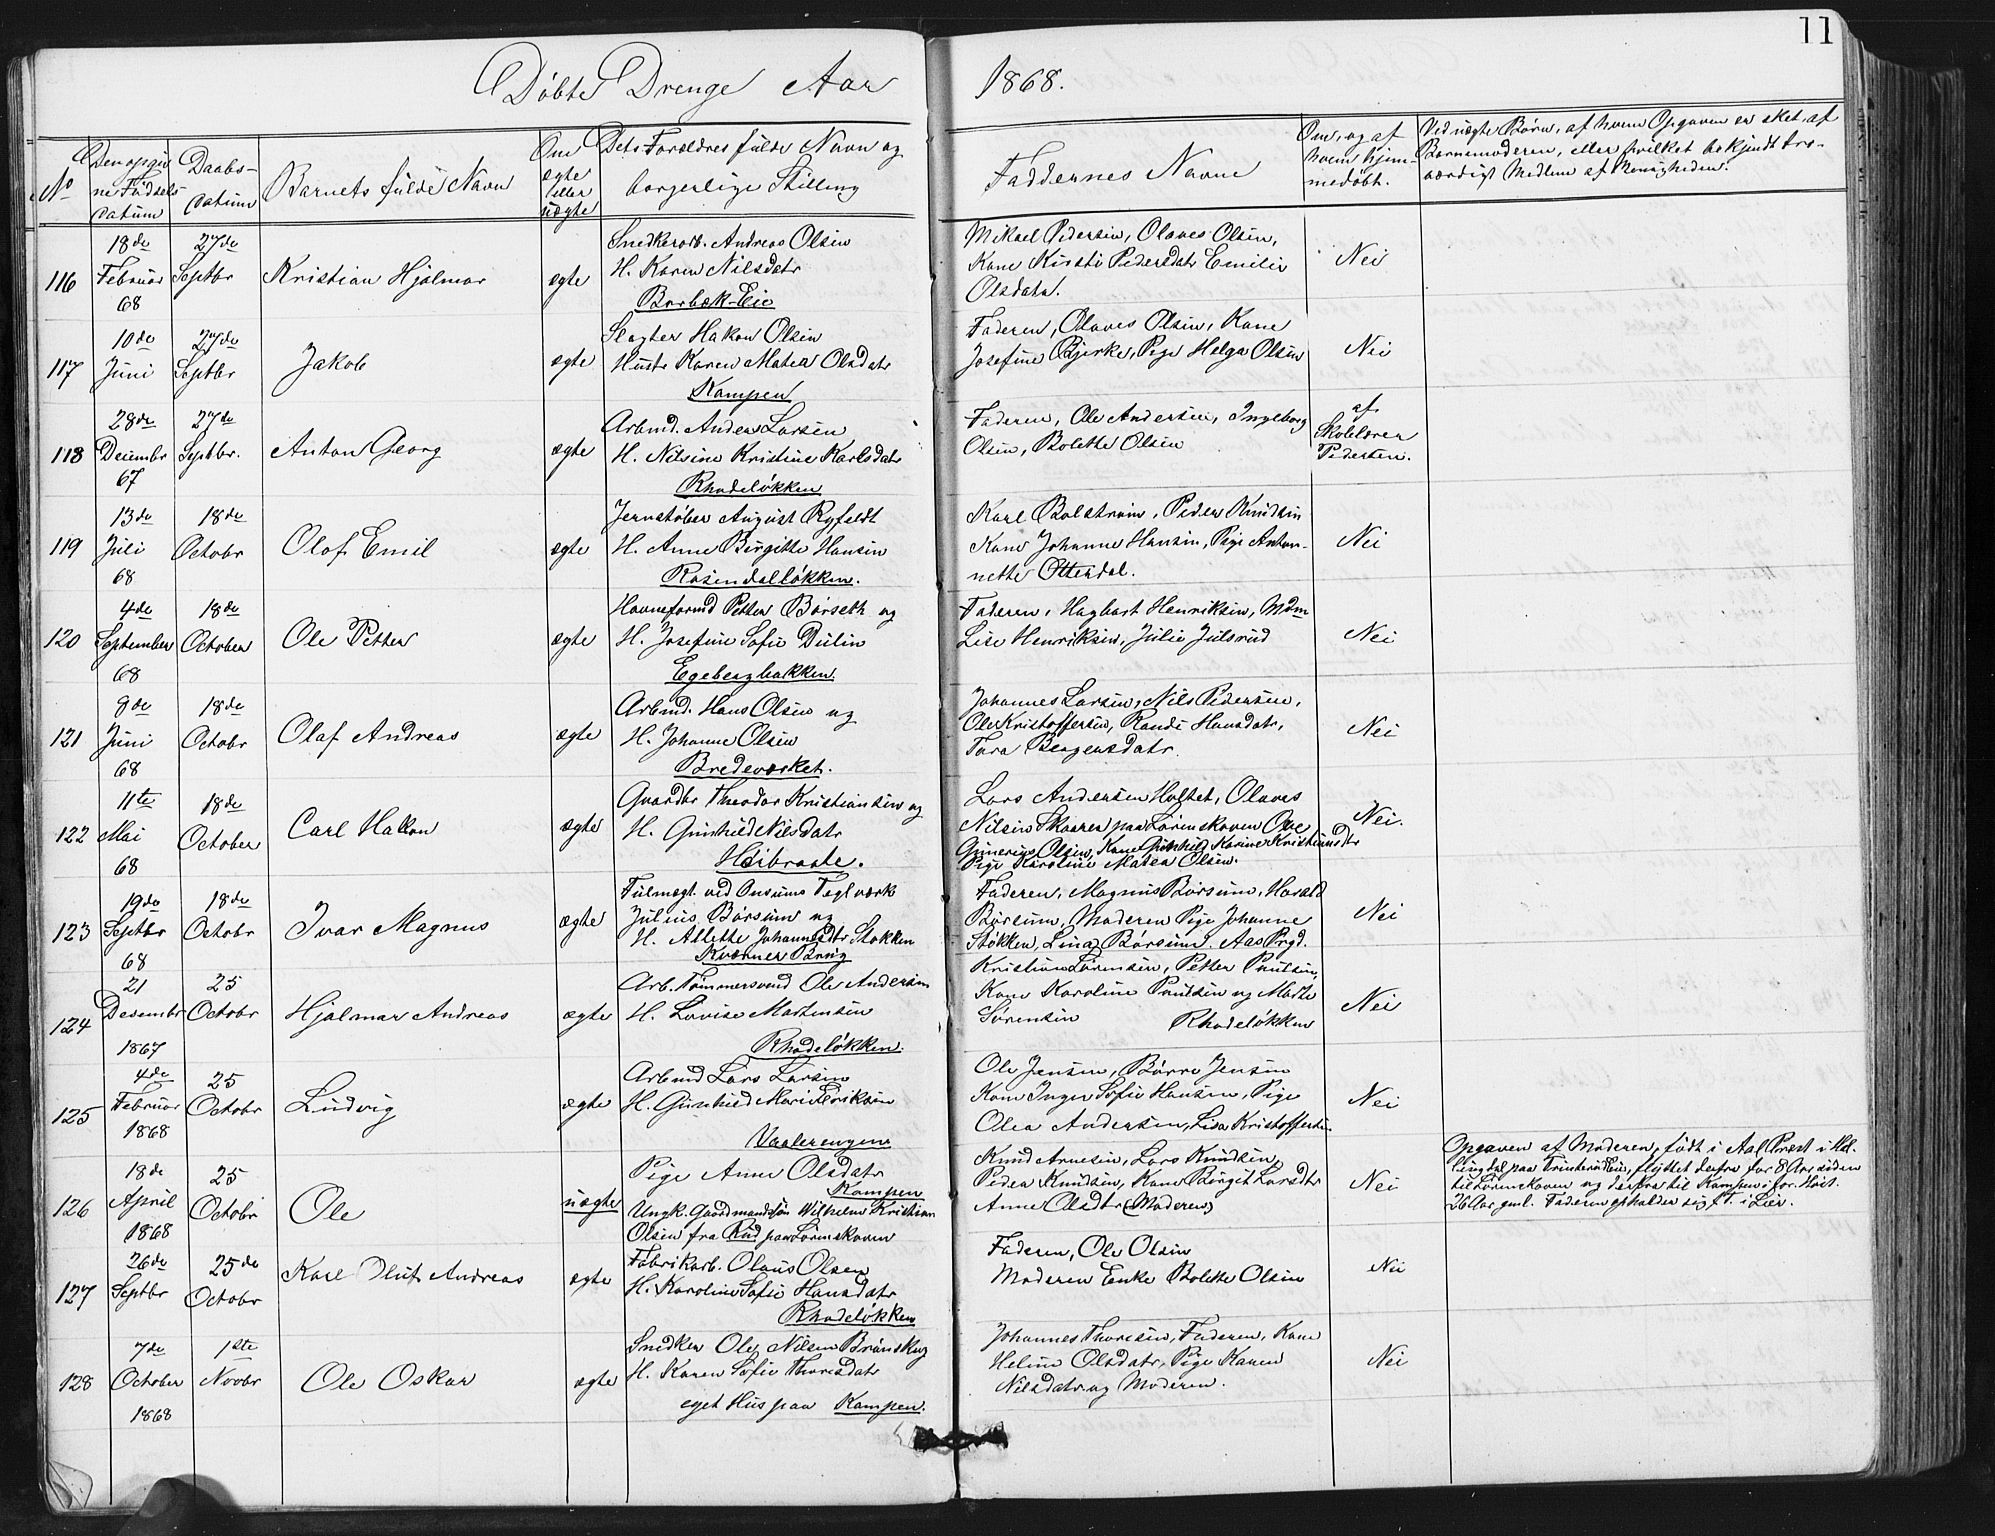 11
Døbte Drenge Aar 1868.
No
Den opgiv
ne Fødsels
Datum
Daabs-
Datum
Barnets fulde Navn
Om
ægte
eller
uægte
Dets Forældres fulde Navn og
borgerlige Stilling
Faddernes Navne
Om, og af
hvem hjem-
medøbt.
Ved uægte Børn, af hvem Opgaven er sket, af
Barnemoderen, eller hvilket bekjendt tro-
værdigt Medlem af Menigheden.
116
18de
Februar
68
27de
Septbr
Kristian Hjalmar
ægte
Snedkerarb. Andreas Olsen
H. Karen Nilsdatr
Barbæk-Eie
Mikael Pedersen, Olaves Olsen,
Kone Kirsti Pedersdatr Emilie
Olsdatr.
Nei
117
10de
Juni
27de
Septbr
Jakob
ægte
Slagter Hakon Olsen
Hustr Karen Matea Olsdatr
Kampen
Faderen, Olaves Olsen, Kone
Josefine Bjerke, Pige Helga Olsen
Nei
118
28de
Decembr
67
27de
Septbr.
Anton Georg
ægte
Arbmd. Anders Larsen
H. Nilsine Kristine Karlsdatr
Rhodeløkken
Faderen, Ole Andersen, Ingeborg
Olsen, Bolette Olsen
af
Skolelærer
Pedersen.
119
13de
Juli
68
18de
Octobr
Olof Emil
ægte
Jernstøber August Ryfeldt
H. Anne Birgitte Hansen
Rosendalløkken.
Karl Bolstrøm, Peder Knudsen
Kone Johanne Hansen, Pige Anton-
nette Otterdal.
Nei
120
4de
September
68
18de
October
Ole Petter
ægte
Havneformd Petter Børseth og
H. Josefine Sofie Dulin
Egebergbakken
Faderen, Hagbart Henriksen, Mdm
Lise Henriksen, Julie Julsrud
Nei
121
9de
Juni
68
18de
Octobr
Olaf Andreas
ægte
Arbmd. Hans Olsen og
H. Johanne Olsen
Bredeværket.
Johannes Larsen, Nils Pedersen,
Ole Kristoffersen, Randi Hansdatr,
Tara Bergersdatr.
Nei
122
11te
Mai
68
18de
October
Carl Hakon
ægte
Gaardbr Theodor Kristiansen og
H. Gunhild Nilsdatr
Høibraate.
Lars Andersen Holtet, Olaves
Nilsen Skaarer paa Lørenskoven Ole
Gunerius Olsen, Kone Gunhild Karine Kristiansdtr
Pige Karoline Matea Olsen.
Nei.
123
19de
Septbr
68
18de
Octobr
Ivar Magnus
ægte
Fulmægt. ved Onsums Teglværk
Julius Børsum og
H. Allette Johannesdtr Stokken
Kværner Brug
Faderen, Magnus Børsum, Harald
Børsum, Moderen Pige Johanne
Støkken, Lina Børsum. Aas Prgd.
Nei
124
21
Desembr
1867
25
Octobr
Hjalmar Andreas
ægte
Arb. Tømmersvend Ole Andersen
H. Lovise Martensen
Rhodeløkken.
Kristian Sørensen, Petter Poulsen,
Kone Karoline Poulsen og Marte
Sørensen Rhodeløkken
Nei
125
4de
Februar
1868
25
Octobr
Ludvig
ægte
Arbmd Lars Larsen
H. Gunhild Marie Eriksen
Vaalerengen
Ole Jensen, Børre Jensen
Kone Inger Sofie Hansen, Pige
Olea Andersen, Lisa Kristoffersen
Nei
126
18de
April
1868
25
Octobr
Ole
uægte
Pige Anne Olsdatr
Kampen
Ungk. Gaardmandssøn Wilhelm Kristian
Olsen fra Rud paa Lørenskoven
Knud Arnesen, Lars Knudsen,
Peder Knudsen, Kone Børgit Larsdtr
Anne Olsdtr (Moderen)
Nei
Opgaven af Moderen, født i Aal Prest i Hal-
lingdal paa Trinterud Eie, flyttet derfra for 8 Aar siden
til Lørenskoven og derfra til Kampen i for. Høst.
26 Aar gml. Faderen opholder sig f.T. i Lier.
127
26de
Septbr
25de
Octobr
Karl Oluf Andreas
ægte
Fabrikarb. Olaus Olsen
H. Karoline Sofie Hansdatr
Rhodeløkken
Faderen, Ole Olsen
Moderen Enke Bolette Olsen
Nei
128
7de
October
1868
1ste
Novbr
Ole Oskar
ægte
Snedker Ole Nilsen Brønskog
H. Karen Sofie Thoresdatr
eget Hus paa Kampen.
Johannes Thoresen, Faderen, Kone
Heline Olsdatr, Pige Karen
Nilsdatr og Moderen.
Nei